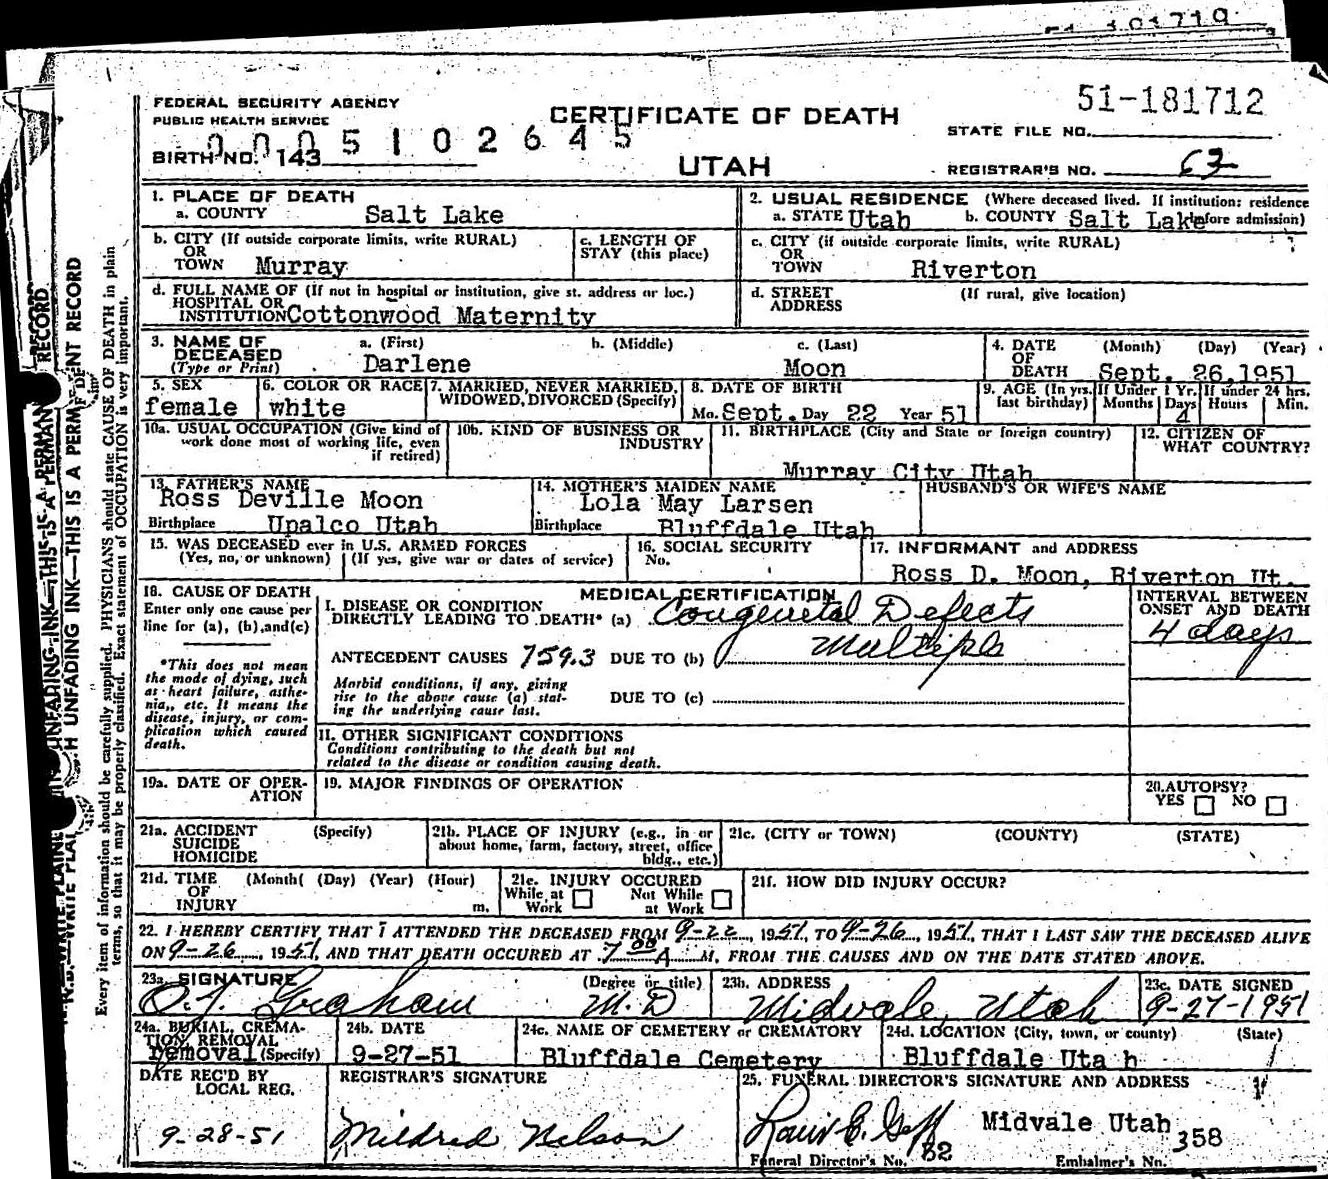 FEDERAL SECURITY AGENCY
PUBLIC HEALTH SERVICE
CERTIFICATE OF DEATH
UTAH
51-181712
STATE FILE NO.
0005102645
BIRTH NO. 143
REGISTRAR'S NO. 63
1. PLACE OF DEATH
a. COUNTY Salt Lake
2. USUAL RESIDENCE (Where deceased lived. If institution: residence before admission)
a. STATE Utah b. COUNTY Salt Lake
b. CITY (If outside corporate limits, write RURAL)
OR
TOWN Murray
c. LENGTH OF
STAY (this place)
c. CITY (if outside corporate limits, write RURAL)
OR
TOWN Riverton
d. FULL NAME OF (If not in hospital or institution, give st. address or loc.)
HOSPITAL OR
INSTITUTION Cottonwood Maternity
d. STREET (If rural, give location)
ADDRESS
3. NAME OF
DECEASED
(Type or Print)
a. (First) b. (Middle) c. (Last)
Darlene Moon
4. DATE (Month) (Day) (Year)
OF
DEATH Sept. 26,1951
5. SEX
female
6. COLOR OR RACE
white
7. MARRIED, NEVER MARRIED,
WIDOWED, DIVORCED (Specify)
8. DATE OF BIRTH
Mo. Sept. Day 22 Year 51
9. AGE (In yrs. last birthday)
If Under 1 Yr.
Months Days
4
If under 24 hrs.
Hours Min.
10a. USUAL OCCUPATION (Give kind of
work done most of working life, even
if retired)
10b. KIND OF BUSINESS OR
INDUSTRY
11. BIRTHPLACE (City and State or foreign country)
Murray City Utah
12. CITIZEN OF
WHAT COUNTRY?
13. FATHER'S NAME
Ross Deville Moon
Birthplace Upalco Utah
14. MOTHER'S MAIDEN NAME
Lola May Larsen
Birthplace Bluffdale Utah
HUSBAND'S OR WIFE'S NAME
15. WAS DECEASED ever in U.S. ARMED FORCES
(Yes, no, or unknown) (If yes, give war or dates of service)
16. SOCIAL SECURITY
No.
17. INFORMANT and ADDRESS
Ross D. Moon, Riverton Ut.
18. CAUSE OF DEATH
Enter only one cause per
line for (a), (b), and (c)
*This does not mean
the mode of dying, such
as heart failure, asthe-
nia, etc. It means the
disease, injury, or com-
plication which caused
death.
MEDICAL CERTIFICATION
I. DISEASE OR CONDITION
DIRECTLY LEADING TO DEATH* (a) Congenital Defects
Multiple
ANTECEDENT CAUSES 759.3 DUE TO (b)
Morbid conditions, if any, giving
rise to the above cause (a) stat-
ing the underlying cause last.
DUE TO (c)
INTERVAL BETWEEN
ONSET AND DEATH
4 days
II. OTHER SIGNIFICANT CONDITIONS
Conditions contributing to the death but not
related to the disease or condition causing death.
19a. DATE OF OPER-
ATION
19. MAJOR FINDINGS OF OPERATION
20. AUTOPSY?
YES NO
21a. ACCIDENT (Specify)
SUICIDE
HOMICIDE
21b. PLACE OF INJURY (e.g., in or
about home, farm, factory, street, office
bldg., etc.)
21c. (CITY or TOWN) (COUNTY) (STATE)
21d. TIME (Month( (Day) (Year) (Hour)
OF
INJURY m.
21e. INJURY OCCURED
While at Work Not While at Work
21f. HOW DID INJURY OCCUR?
22. I HEREBY CERTIFY THAT I ATTENDED THE DECEASED FROM 9-22, 1951, TO 9-26, 1951, THAT I LAST SAW THE DECEASED ALIVE
ON 9-26, 1951, AND THAT DEATH OCCURED AT 7 00 A M, FROM THE CAUSES AND ON THE DATE STATED ABOVE.
23a. SIGNATURE (Degree or title)
O.J. Graham M.D
23b. ADDRESS
Midvale, Utah
23c. DATE SIGNED
9-27-1951
24a. BURIAL, CREMA-
TION, REMOVAL
removal (Specify)
24b. DATE
9-27-51
24c. NAME OF CEMETERY or CREMATORY
Bluffdale Cemetery
24d. LOCATION (City, town, or county) (State)
Bluffdale Uta h
DATE REC'D BY
LOCAL REG.
9-28-51
REGISTRAR'S SIGNATURE
Mildred Nelson
25. FUNERAL DIRECTOR'S SIGNATURE AND ADDRESS
Midvale Utah
Funeral Director's No. 82
Embalmer's No. 358
N.B.—WRITE PLAINLY WITH UNFADING INK—THIS IS A PERMANENT RECORD
Every item of information should be carefully supplied. PHYSICIANS should state CAUSE OF DEATH in plain
terms, so that it may be properly classified. Exact statement of OCCUPATION is very important.